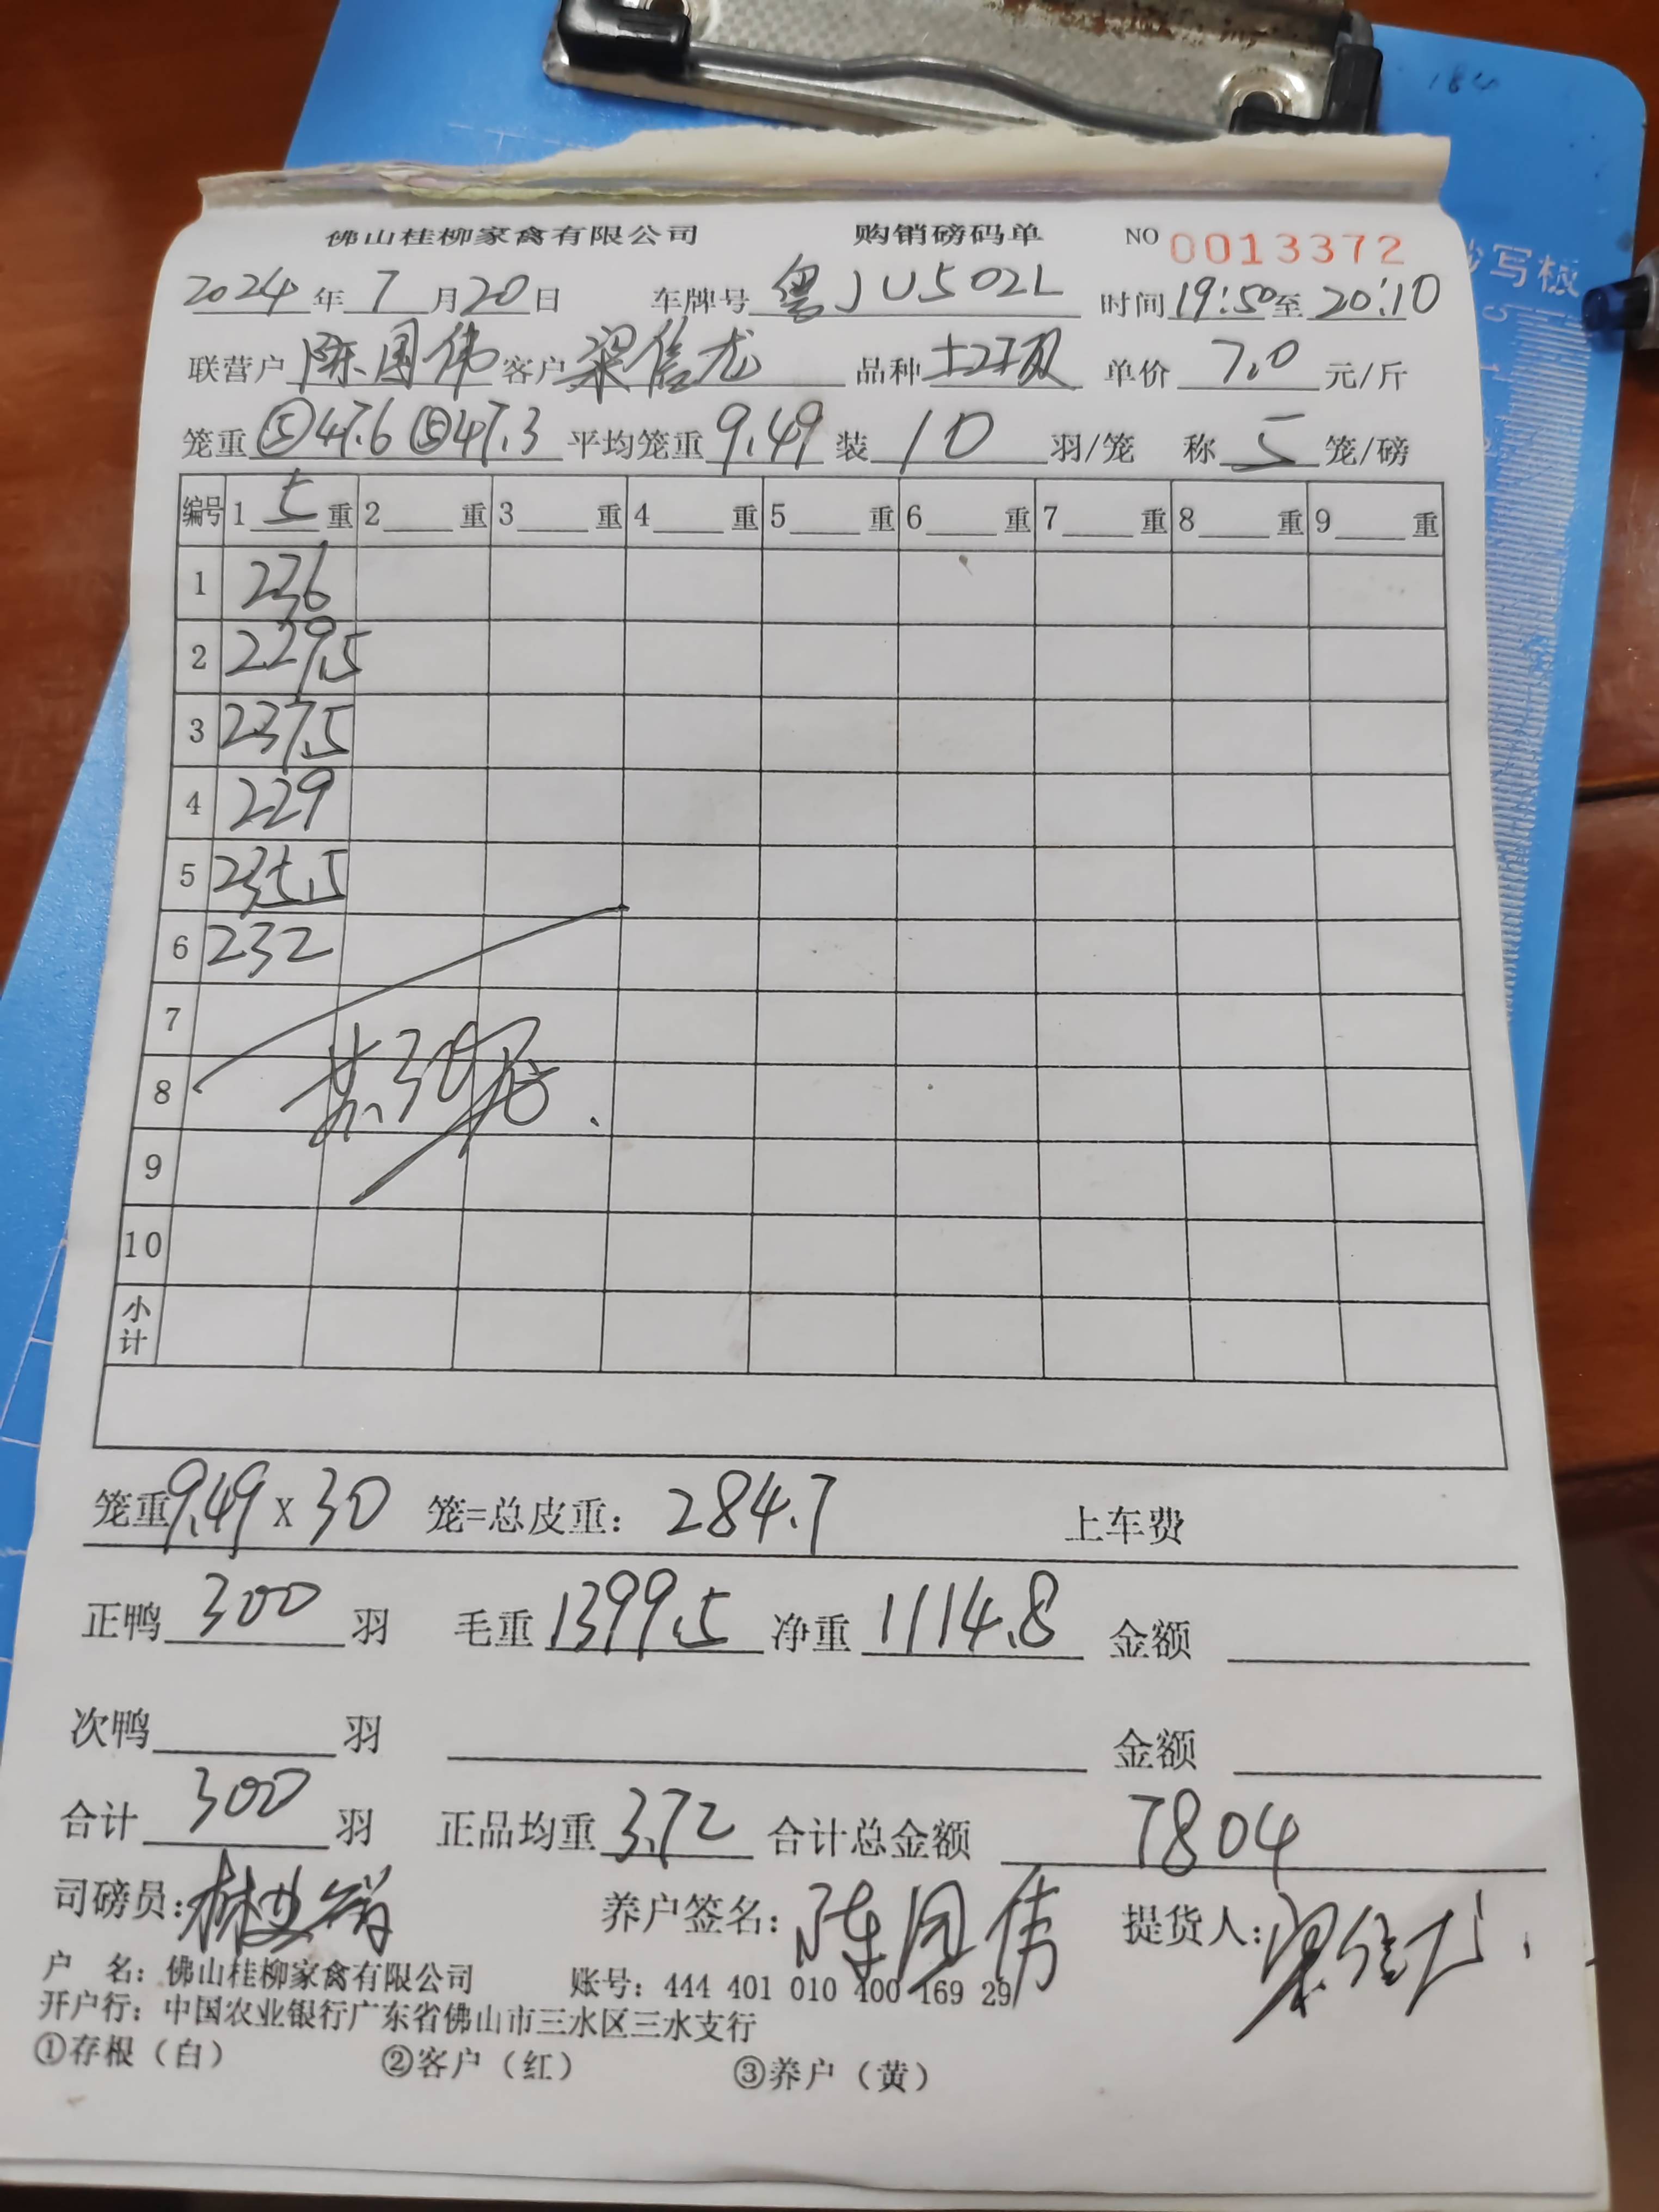 184
佛山桂柳家禽有限公司 购销磅码单 NO 0013372
抄写板
2024年7月20日 车牌号 粤JU502L 时间19:50至20:10
联营户 陈国伟 客户 梁信龙 品种 土二级 单价 7.0 元/斤
笼重 ⑤47.6 ⑤47.3 平均笼重 9.49 装 10 羽/笼 称 5 笼/磅
编号 1 5 重 2 重 3 重 4 重 5 重 6 重 7 重 8 重 9 重
1 236
2 229.5
3 237.5
4 229
5 235.5
6 232
7
8 共30笼.
9
10
小计
笼重9.49 X 30 笼=总皮重: 284.7 上车费
正鸭 300 羽 毛重 1399.5 净重 1114.8 金额
次鸭 羽 金额
合计 300 羽 正品均重 3.72 合计总金额 7804
司磅员: 养户签名: 陈国伟 提货人: 梁信龙
户 名: 佛山桂柳家禽有限公司 账号: 444 401 010 400 169 29
开户行: 中国农业银行广东省佛山市三水区三水支行
①存根（白） ②客户（红） ③养户（黄）